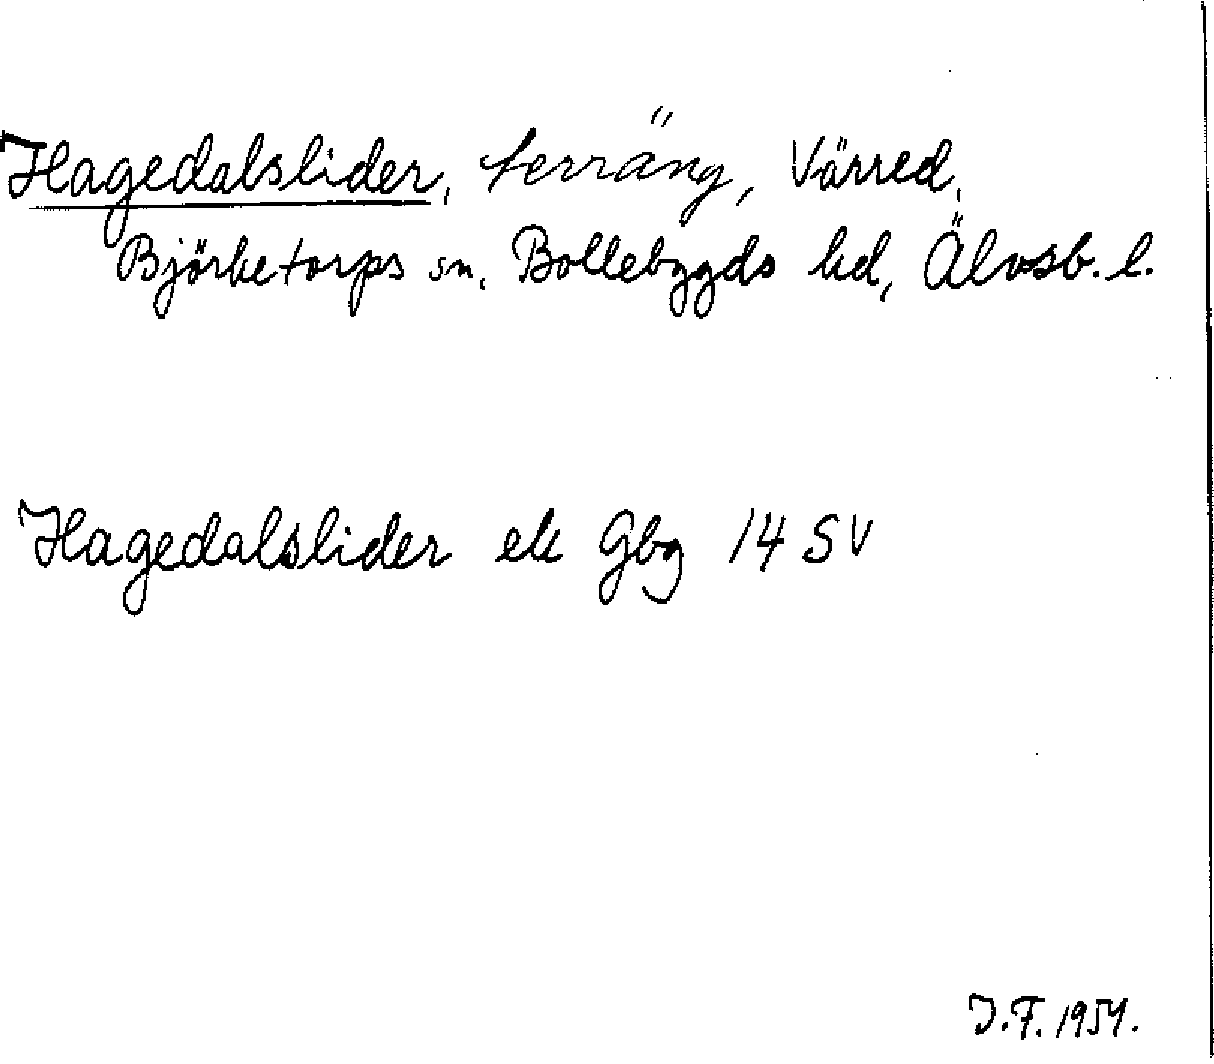 Hagedalslider, terräng, Värred,
Björketorps sn, Bollebygds hd, Älvsb. l.
Hagedalslider ek Gbg 14 SV
J.F. 1954.